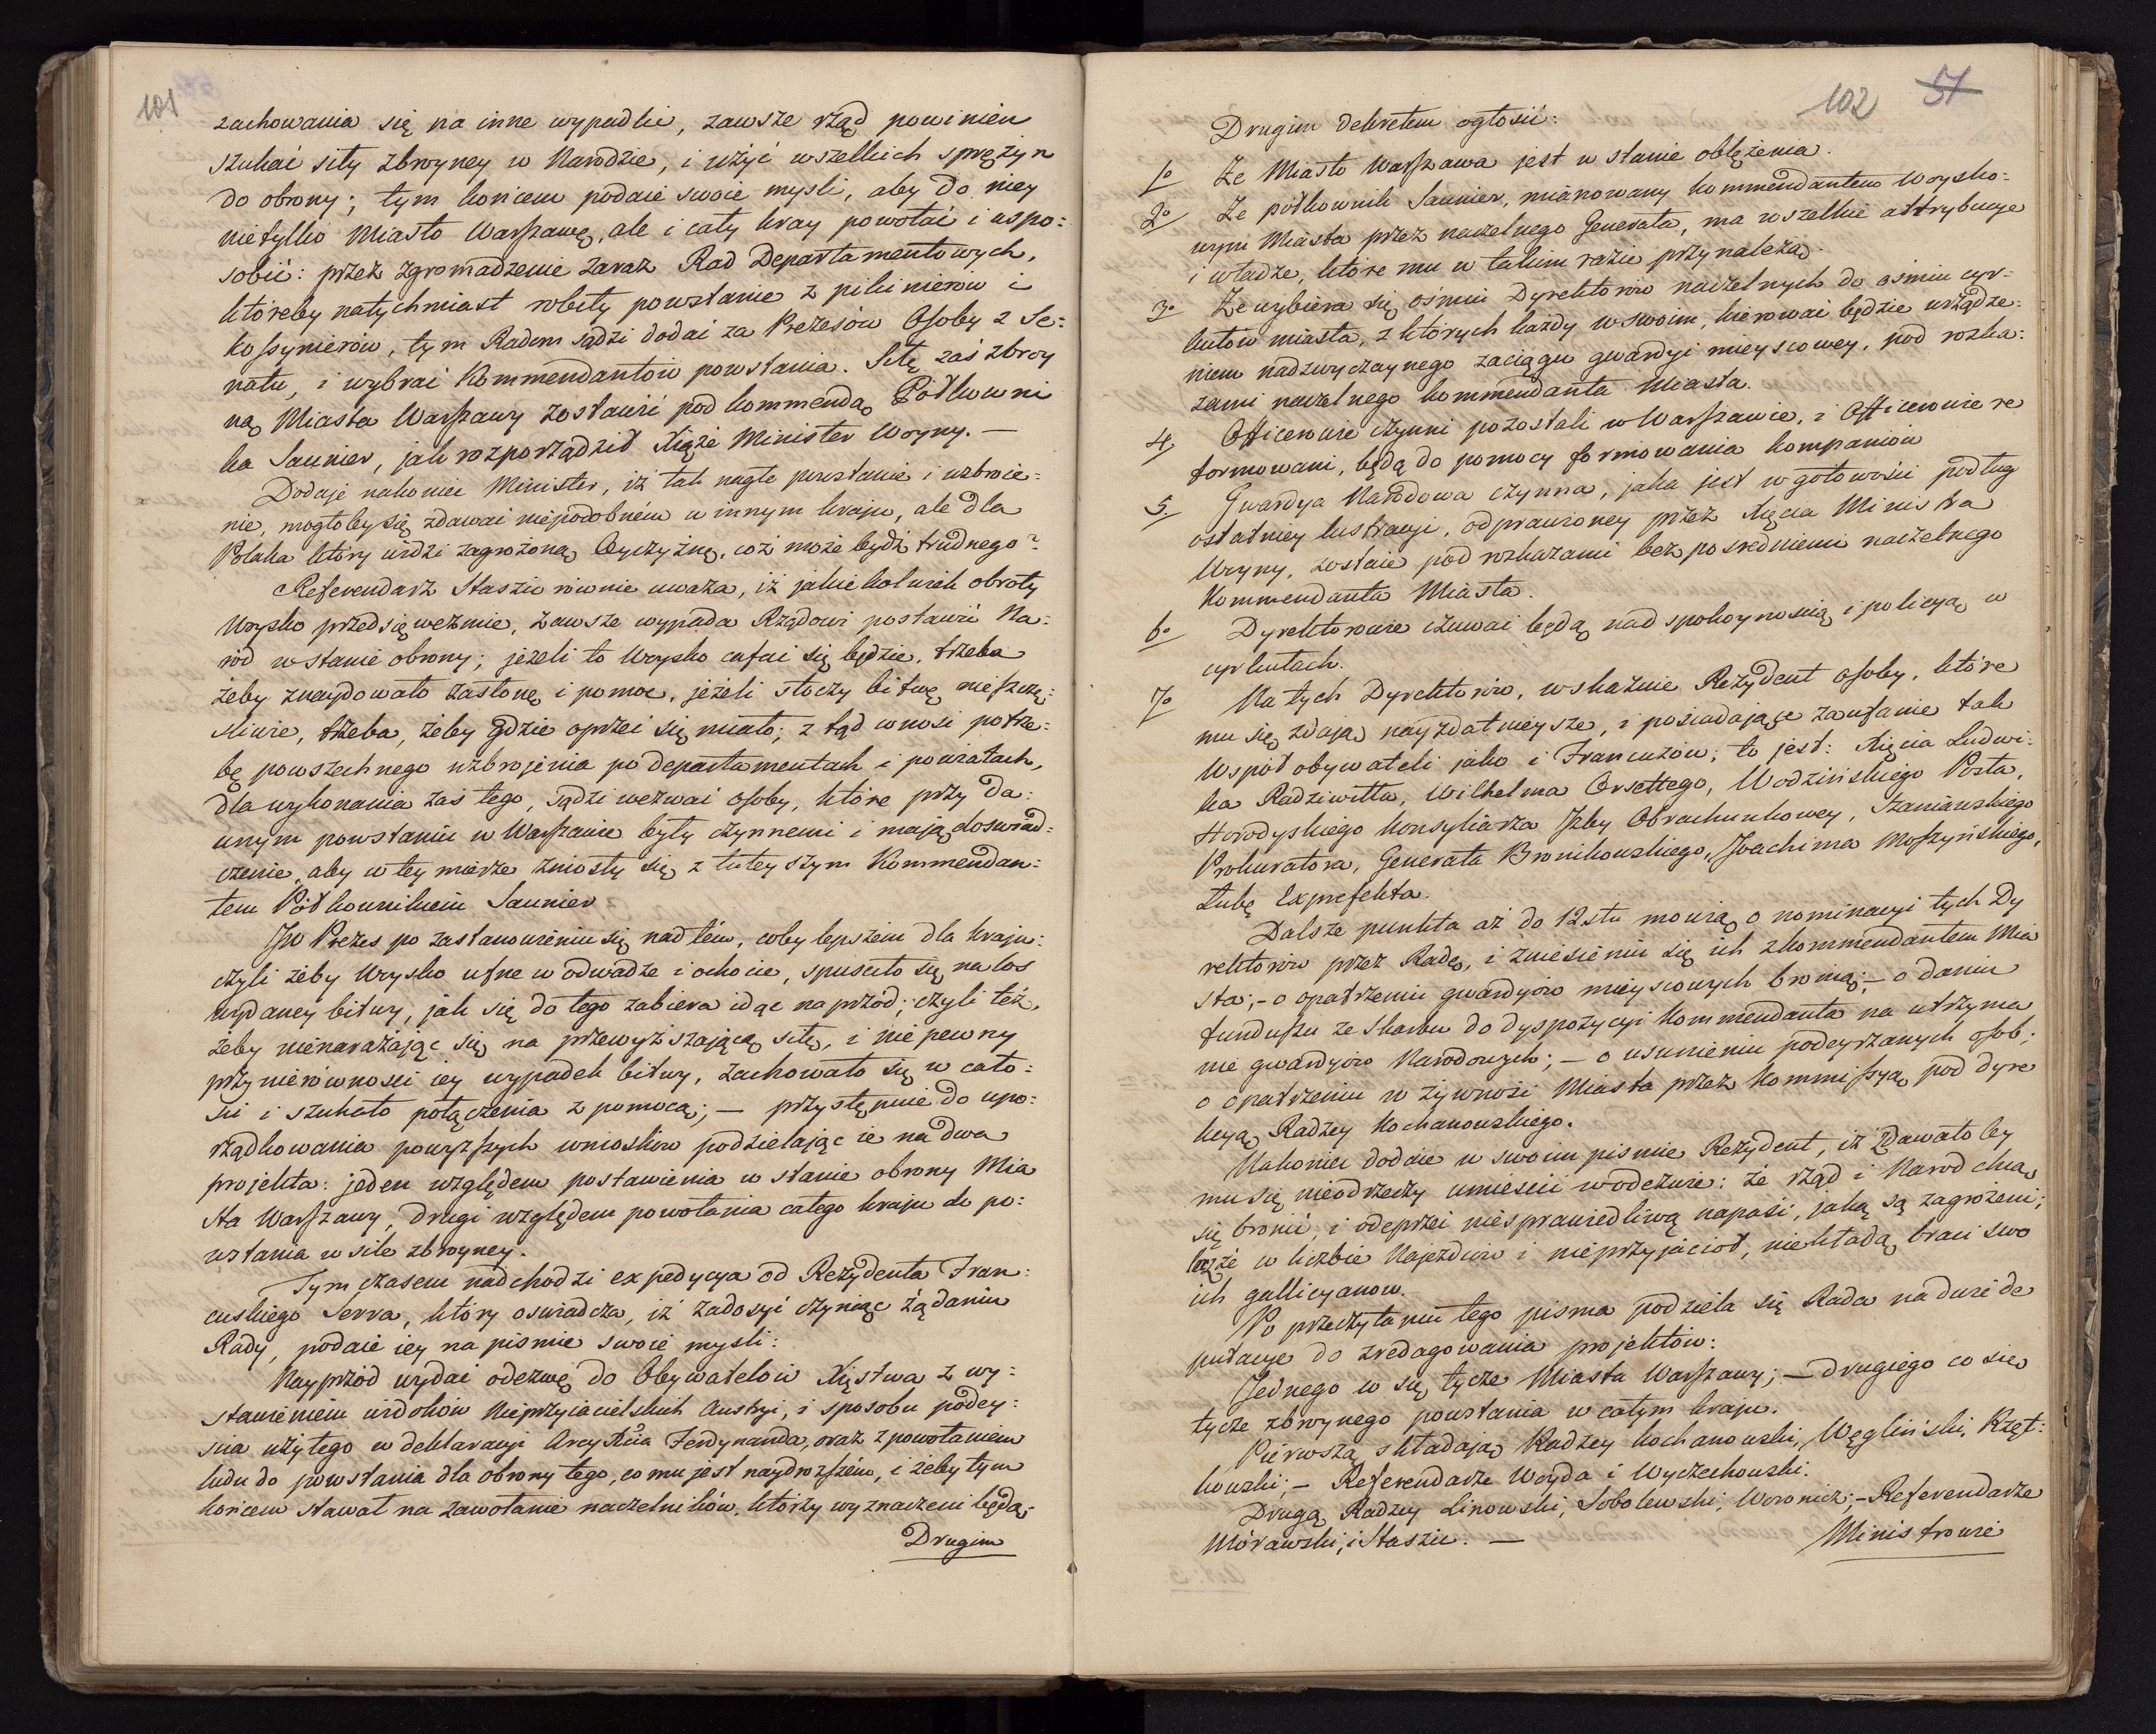 101
zachowania się na inne wypadki, zawsze rząd powinien
szukać siły zbroyney w Narodzie, i użyć wszelkich sprężyn
do obrony; tym końcem podaie swoie mysli, aby do niey
nietylko Miasto Warszawę, ale i cały kray powołać i uspo:
sobić: przez zgromadzenie zaraz Rad Departamentowych,
któreby natychmiast robiły powstanie z pikinierów i
kossynierow, tym Radom sądzi dodać za Prezesów Osoby z Se:
natu, i wybrać Kommendantów powstania. Siłę zaś zbroy
ną Miasta Warszawy zostawić pod kommendą Półkowni
ka Saunier, jak rozporządził Xiąże Minister Woyny. —
Dodaje nakoniec Minister, iż tak nagłe powstanie i uzbroie=
nie, mogłobysię zdawać niepodobném w innym kraju, ale dla
Polaka który widzi zagrożoną Oyczyżnę, cóż może bydź trudnego?
Referendarz Staszic równie uważa, iż jakiekolwiek obroty
Woysko przedsięweźmie, zawsze wypada Rządowi postawić Na:
ród w stanie obrony; jeżeli to Woysko cofać się będzie, trzeba
żeby znaydowało zasłonę i pomoc, jeżeli stoczy bitwę nieszczę:
śliwie, trzeba, żeby gdzie oprzeć się miało; z tąd wnosi potrze:
bę powszechnego uzbrojenia po departamentach i powiatach,
dla wykonania zaś tego, sądzi wezwać osoby, które przy da:
wnym powstaniu w Warszawie były czynnemi i mają doswiad:
czenie, aby w tey mierze zniosły się z tuteyszym Kommendan:
tem Półkownikiem Saunier
JW Prezes po zastanowieniu się nad tém, coby lepszém dla kraju:
czyli żeby Woysko ufne w odwadze i ochocie, spuściło się na los
wydaney bitwy, jak się do tego zabiera idąc naprzód; czyli też,
żeby nienarażając się na przewyższającą siłę, i niepewny
przy nierównosci iey wypadek bitwy, zachowało się w cało:
ści i szukało połączenia z pomocą; — przystępuie do upo:
rządkowania powyższych wniosków podzielając ie na dwa
projekta: jeden względem postawienia w stanie obrony Mia
sta Warszawy, drugi względem powołania całego kraju do po:
wstania w sile zbroyney.
Tym czasem nadchodzi expedycya od Rezydenta Fran:
cuskiego Serra, który oswiadcza, iż zadosyć czyniąc żądaniu
Rady, podaie iey na pismie swoie mysli:
Nayprzód wydać odezwę do Obywatelów Xięstwa z wy:
stawieniem widoków Nieprzyiacielskich Austryi, i sposobu podey:
scia użytego w deklaracyi ArcyXcia Ferdynanda, oraz z powołaniem
ludu do powstania dla obrony tego, co mu jest naydroższém, i żeby tym
końcem stawał na zawołanie naczelników, którzy wyznaczeni będą;
Drugim
102 51
Drugim dekretem ogłosić:
1o Ze Miasto Warszawa jest w stanie oblężenia.
2o Ze półkownik Saunier, mianowany kommendantem Woysko:
wym Miasta przez naczelnego Generała, ma wszelkie attrybucye
i władze, które mu w takim razie przynależą.
3o Ze wybiera się ośmiu Dyrektorów naczelnych do ośmiu cyr:
kułów miasta, z których każdy w swoim, kierować będzie urządze:
niem nadzwyczaynego zaciągu gwardyi mieyscowey, pod rozka:
zami naczelnego kommendanta Miasta.
4. Officerowie czynni pozostali w Warszawie, i Officerowie re
formowani, będą do pomocy formowania kompaniów
5. Gwardya Narodowa czynna, jaka jest w gotowości podług
ostatniey lustracyi, odprawioney przez Xięcia Ministra
Woyny, zostaie pod rozkazami bezposredniemi naczelnego
Kommendanta Miasta.
6o Dyrektorowie czuwać będą nad spokoynoscią i policyą w
cyrkułach.
7o Na tych Dyrektorów, wskazuie Rezydent osoby, które
mu się zdają nayzdatnieysze, i posiadające zaufanie tak
współobywateli jako i Francuzów; to jest: Xięcia Ludwi:
ka Radziwiłła, Wilhelma Orsettego, Wodzińskiego Posła,
Horodyskiego Konsyliarza Jzby Obrachunkowey, Szaniawskiego
Prokuratora, Generała Bronikowskiego, Joachima Moszyńskiego,
Łubę Exprefekta.
Dalsze punkta aż do 12stu mowią o nominacyi tych Dy
rektorów przez Radę, i zniesieniu się ich z kommendantem Mia
sta; - o opatrzeniu gwardyów mieyscowych bronią; - o daniu
funduszu ze Skarbu do dyspozycyi Kommendanta na utrzyma
nie gwardyów Narodowych; — o usunieniu podeyrzanych osob;
o opatrzeniu w żywnośc Miasta przez Kommissyą pod dyre
kcyą Radzcy Kochanowskiego.
Nakoniec dodaie w swoim pismie Rezydent, iż zdawałoby
mu się nieodrzeczy umiescić w odezwie: że rząd i Narod chcą
się bronić, i odeprzeć niesprawiedliwą napaść, jaką są zagrożeni;
lecz że w liczbie Najezdców i nieprzyjaciół, niekładą braci swo
ich gallicyanow.
Po przeczytaniu tego pisma podziela się Rada na dwie de
putacye do zredagowania projektów:
Jednego co się tycze Miasta Warszawy; — drugiego co się
tycze zbroynego powstania w całym kraju.
Pierwszą składają Radzcy Kochanowski, Węgliński, Rzęt:
kowski; — Referendarze Woyda i Wyczechowski.
Drugą Radzcy Linowski, Sobolewski, Woronicz; - Referendarze
Morawski, i Staszic. —
Ministrowie